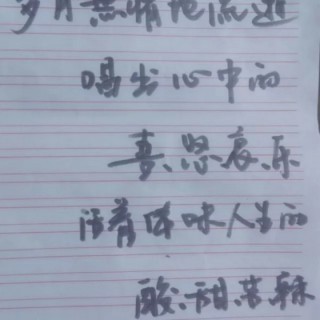 岁月无情地流逝
唱出心中的
喜、怒、哀、乐
活着体味人生的
酸、甜、苦、辣